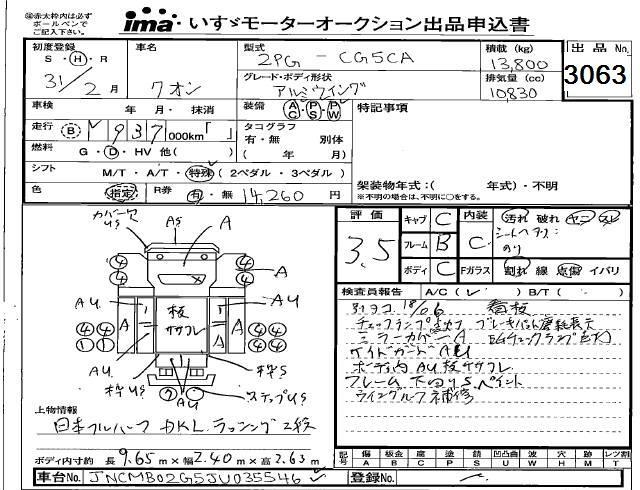 ※赤太枠内は必ず
ボールペンで
ご記入下さい。
ima いすゞモーターオークション出品申込書
初度登録
S・H・R
31/2月
車名
クオン
型式
2PG - CG5CA
グレード・ボディ形状
アルミウイング
積載(kg)
13,800
排気量(cc)
10830
出品No.
3063
車検 年・月・抹消
装備 AC・PS・PW
特記事項
走行 B 937 000km「 」
タコグラフ
有・無 別体
( 年 月)
燃料 G・D・HV 他( )
シフト M/T・A/T・特殊(2ペダル・3ペダル)
色 指定 R券 有・無 14,260円
架装物年式:( 年式)・不明
※不明の場合は、不明に○をする。
評価
3.5
キャブ C
フレーム B
ボディ C
内装
C
Fガラス
汚れ 破れ ヤニ スレ
シートヘタリ:
のり
割れ 線 点傷 イバリ
検査員報告 A/C( ) B/T( )
18/06 看板
ミラーカバーA
サイドガードAU
ボディ内AU板ササクレ
フレーム下回りSペイント
ウイングルーフ補修
カバー欠
US
AS
A
A
AU
AU
A
A
板
ササクレ
枠US
枠S
ステップUS
AU
④ ④
④ ④
④④ ④④
①① ④④
? ?
上物情報
日本フルハーフ DKL ラッシング2段
ボディ内寸約 長9.65m×幅2.40m×高2.63m
記号 傷A 板金B 腐C ポコP 錆S 凹凸曲U 波W 穴H メッキM レンズ割T
車台No. JNCMB02G5JU035546
登録No.